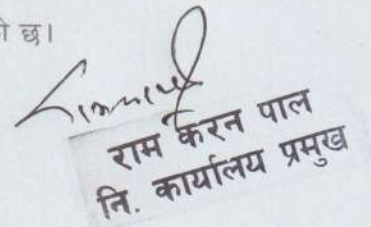 छ।
राम केरन पाल
नि. कार्यालय प्रमुख